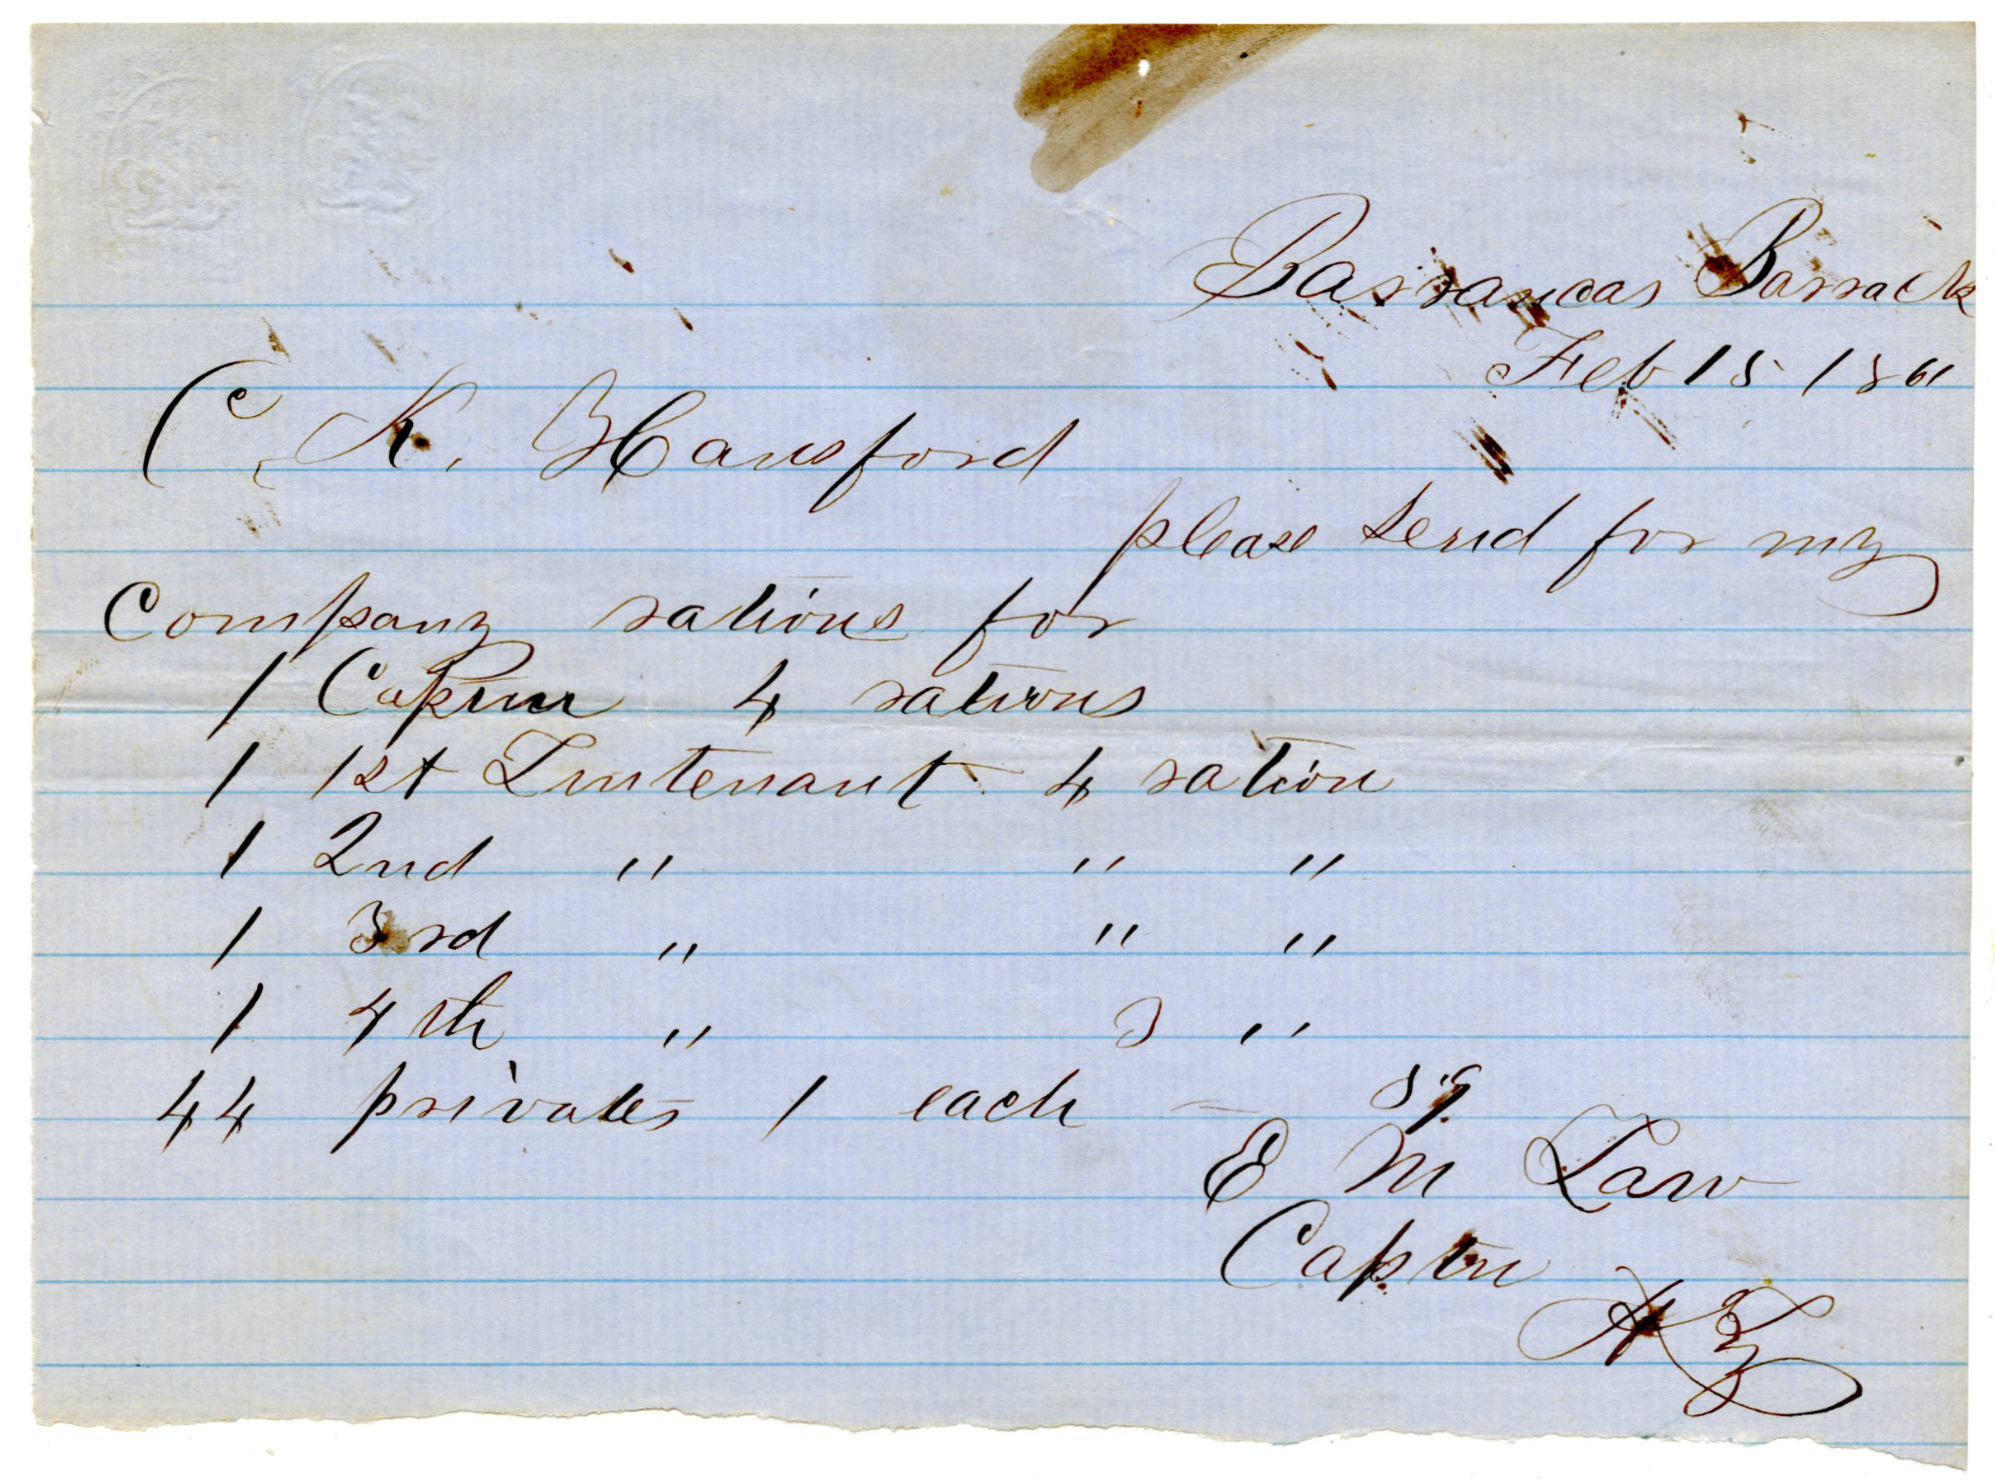 Barrancas Barracks
Feb 15 1861
C. K. Hansford
please send for my
Company rations for
1 Captain 4 rations
1 1st Lieutenant 4 ration
1 2nd " " "
1 3rd " " "
1 4th " 3 "
44 privates 1 each —
E M Law
Captn